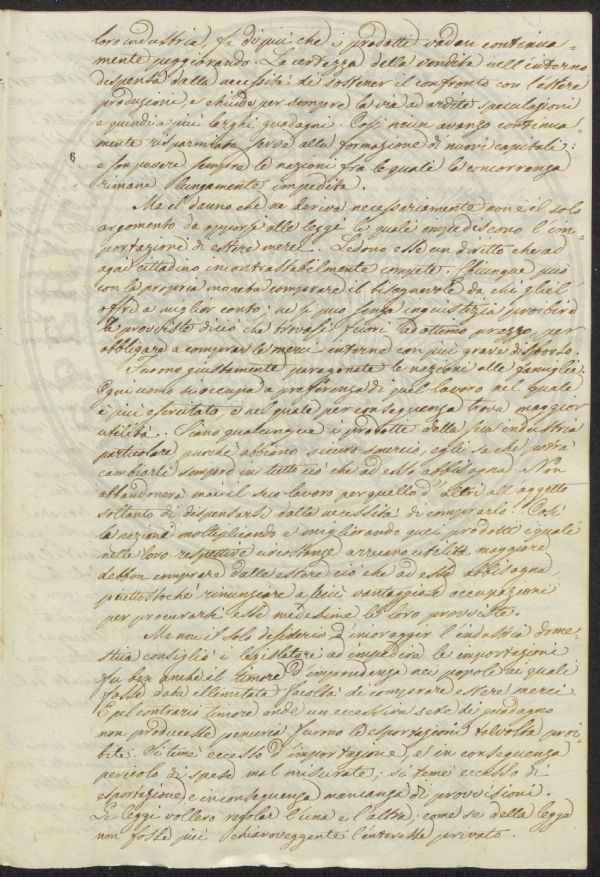 loro industria fa di più che i prodotti vadan continua-
mente peggiorando. La certezza della vendita nell'interno
dispensa dalla necessità di sostener il confronto con l'estere
produzioni e chiude per sempre la via ad ardite speculazioni
e quindi a più larghi guadagni. Così niun avanzo continua-
mente risparmiato serve alla formazione di nuovi capitali:
6
e son povere sempre le nazioni fra le quali la concorrenza
rimane lungamente impedita.
Ma il danno che ne deriva necessariamente non è il solo
argomento da opporsi alle leggi le quali impediscono l'im-
portazione di estere merci. Ledono esse un diritto che ad
ogni cittadino incontrastabilmente compete. Chiunque può
con la propria moneta comprare il bisognevole da chi gliel'
offre a miglior conto; ne si può senza ingiustizia proibire
le provviste di ciò che trovasi fuori ad ottimo prezzo, per
obbligare a comprar le merci interne con più grave disborso.
Furono giustamente paragonate le nazioni alle famiglie.
Ogni uomo si occupa a preferenza di quel lavoro nel quale
è più esercitato, e nel quale per conseguenza trova maggior
utilità. Siano qualunque i prodotti della sua industria
particolare purchè abbiano sicuro smercio, egli sa che potrà
cambiarli sempre in tutto ciò che ad esso abbisogna. Non
abbandonerà mai il suo lavoro per quello d'altri all'oggetto
soltanto di dispensarsi dalla necessità di comprarlo. Così
le nazioni moltiplicando e migliorando quei prodotti i quali
nelle loro rispettive circostanze arrecano utilità maggiore
debbon comprare dalle estere ciò che ad esse abbisogna
piuttostochè rinunziare a più vantaggiose occupazioni
per procurarsi esse medesime le loro provviste.
Ma non il solo desiderio d'incoraggir l'industria dome-
stica consigliò i legislatori ad impedire le importazioni
fu ben anche il timore d'imprudenza nei popoli ai quali
fosse data illimitata facoltà di comprare estere merci.
E pel contrario timore onde un eccessiva sete di guadagno
non producesse penuria furono l'esportazioni talvolta proi-
bite. Si temè eccesso d'importazione, e in conseguenza
pericolo di spese mal misurate; si temè eccesso di
esportazione e in conseguenza mancanza di provvisioni.
Le leggi vollero regolar l'una e l'altra; come se della legge
non fosse più chiaroveggente l'interesse privato.